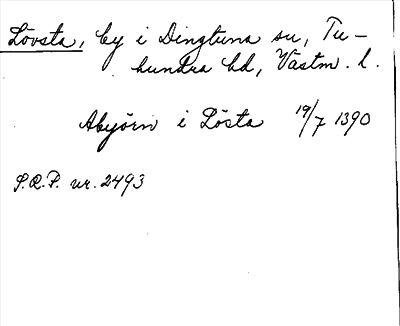 Lövsta, by i Dingtuna sn, Tu-
hundra hd, Västm. l.
Abyörn i Lösta 19/7 1390
S.R.P. nr. 2493